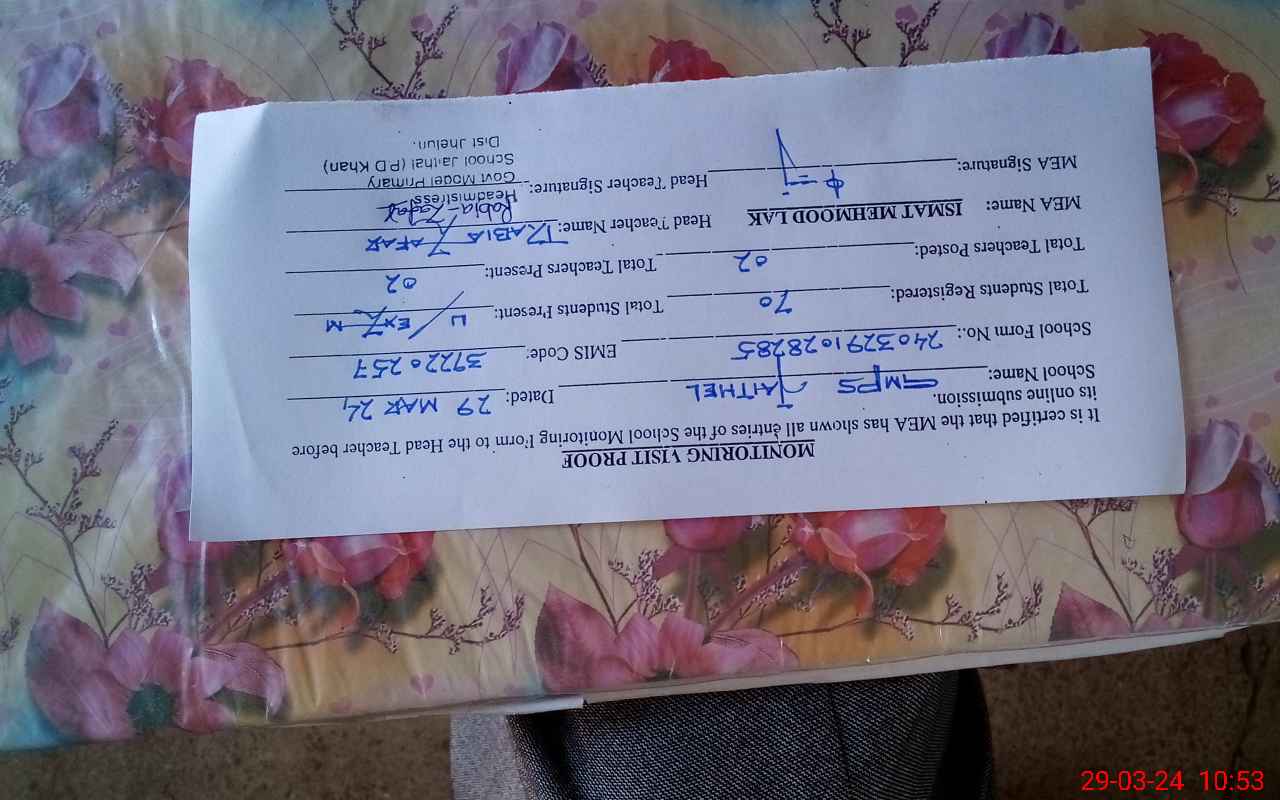 MONITORING VISIT PROOF
It is certified that the MEA has shown all entries of the School Monitoring Form to the Head Teacher before
its online submission.
School Name: GMPS JAITHEL Dated: 29 MAR 24
School Form No.: 2403291028285 EMIS Code: 37220257
Total Students Registered: 70 Total Students Present: U/EXM
Total Teachers Posted: 02 Total Teachers Present: 02
MEA Name: ISMAT MEHMOOD LAK Head Teacher Name: RABIA ZAFAR
MEA Signature: Head Teacher Signature: Rabia Zafar
Headmistress
Govt Model Primary
School Jaithal (P D Khan)
Dist Jhelun.
29-03-24 10:53